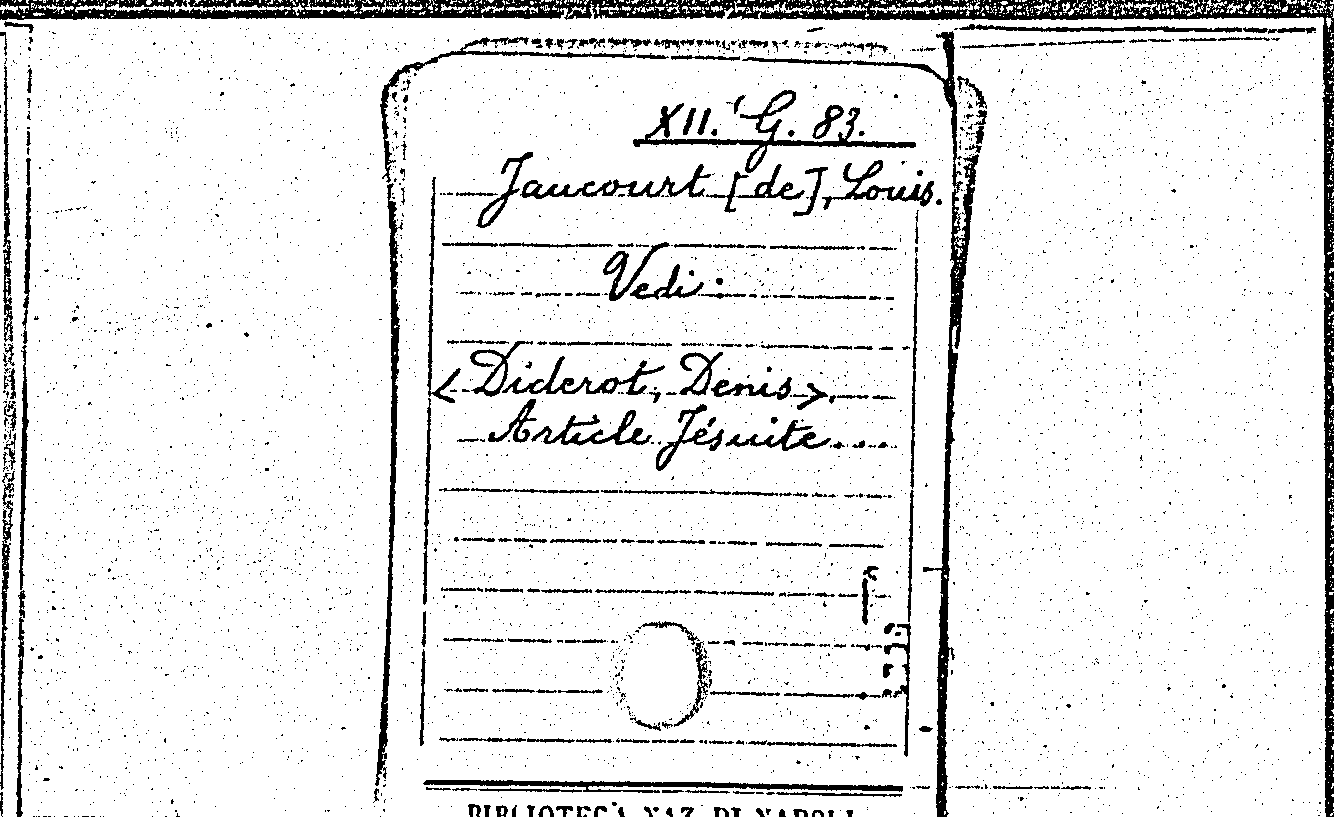 XII. G. 83.
Jaucourt [de], Louis.
Vedi:
<Diderot, Denis>.
Article Jésuite....
BIBLIOTECA NAZ. DI NAPOLI